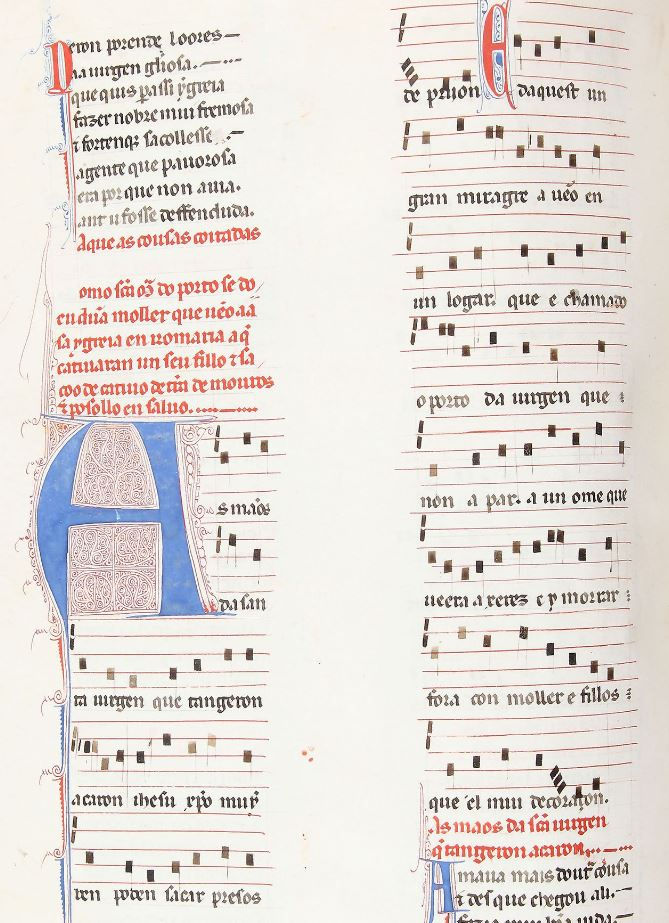 Deron porende loores
aa uirgen gliosa.
que quis passi ygreia
fazer nobre mui fremosa
⁊ forteno sacollesse
agente que pauorosa
era por que non auia.
ant u fosse deffenduda.
Aque as cousas coitadas
omo sca do porto se do
eu dũa moller que uẽo aa
sa ygreia en romaria a q̃
catiuaran un seu fillo ⁊ sa
coo de catiuo de tr̃a de mouros
⁊ posollo en saluo.
As mãos
da san
ta uirgen que tangeron
acaron ihesu xp̃o muy
ben poden sacar presos
de prijon E daquest un
gran miragre a uẽo en
un logar. que e chamado
o porto da uirgen que
non a par. a un ome que
uẽera a xerez e y morrar
fora con moller e fillos
que el mui decoraçon.
As maos da sca uirgen
q̃ tangeron acaron
Amaua mais doutra cousa
⁊ des que chegou ali.